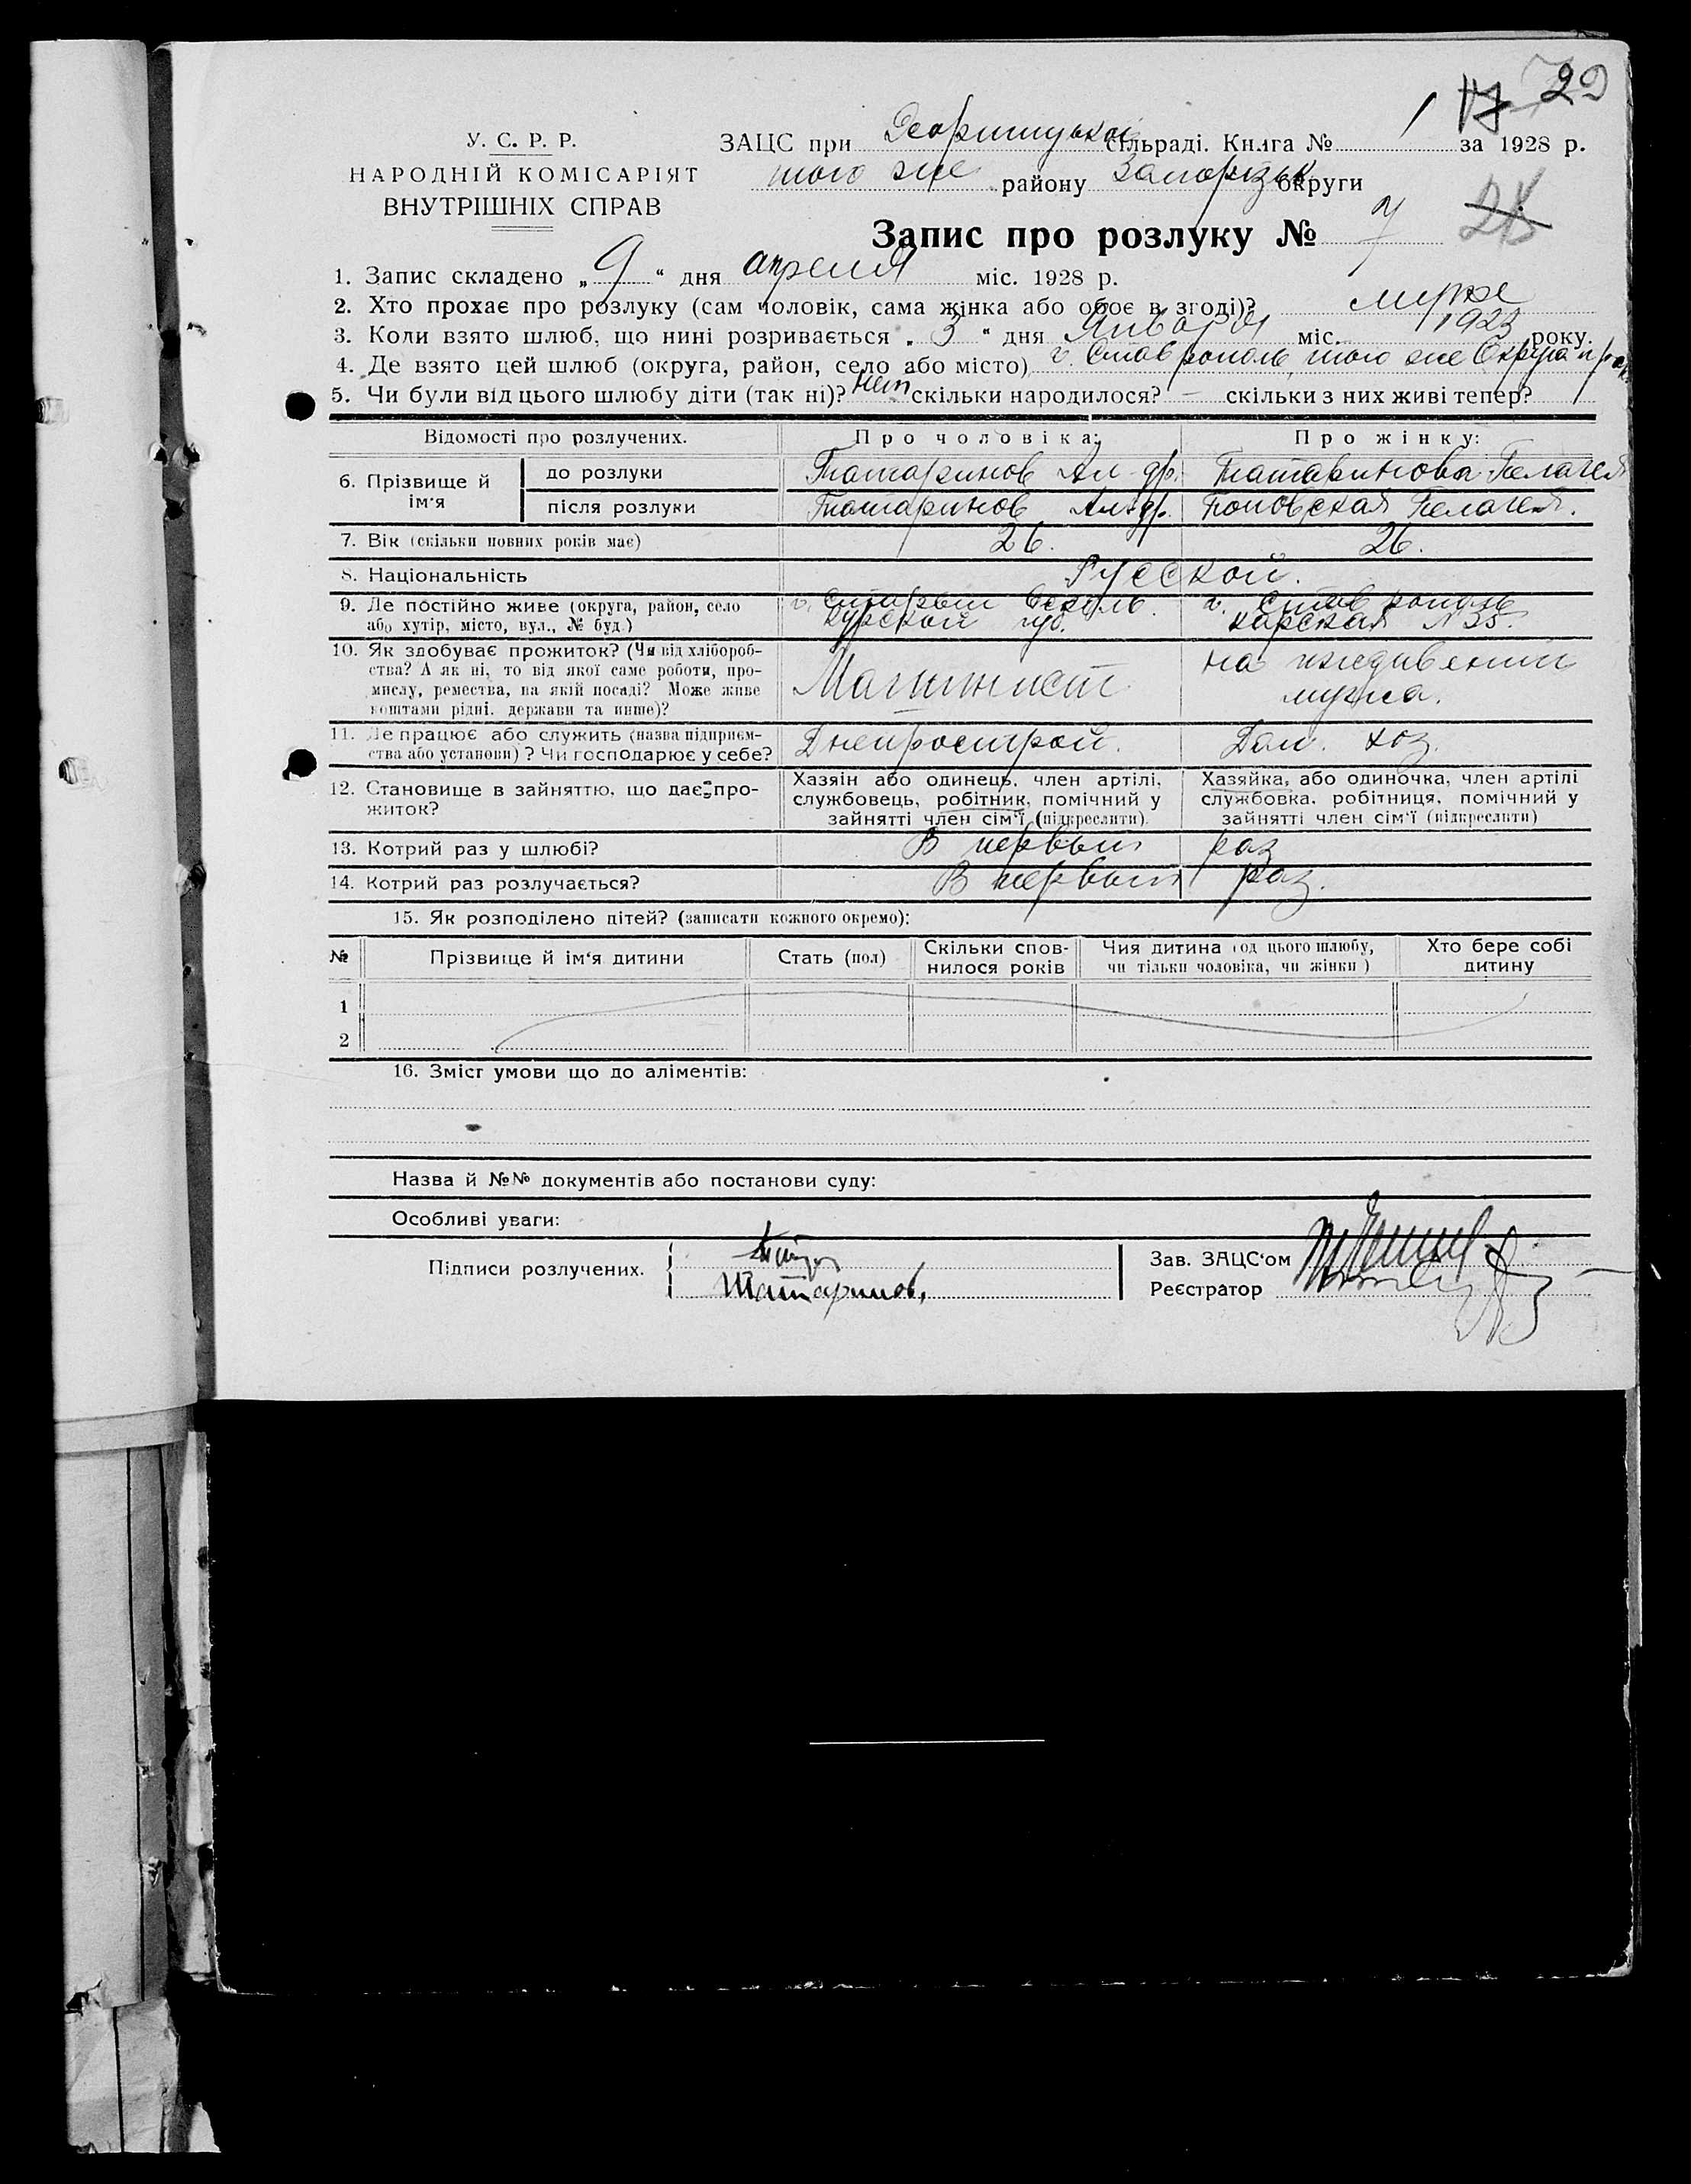 29
У. С. Р. Р.
НАРОДНІЙ КОМІСАРІЯТ
ВНУТРІШНІХ СПРАВ
ЗАЦС при сільраді. Книга № 1 за 1928 р.
того же району Запорізьк округи
Запис про розлуку № 7
1. Запис складено „ 9 “ дня апреля міс. 1928 р.
2. Хто прохає про розлуку (сам чоловік, сама жінка або обоє в згоді)? муже
3. Коли взято шлюб, що нині розривається „ 3 “ дня Января міс. 1923 року.
4. Де взято цей шлюб (округа, район, село або місто) г. Ставрополь, того же Округа
5. Чи були від цього шлюбу діти (так ні)? нет скільки народилося? — скільки з них живі тепер?
Відомості про розлучених. Про чоловіка: Про жінку:
6. Прізвище й ім‘я
до розлуки Татаринов Ал-др. Татаринова Пелагея
після розлуки Татаринов Ал-др. Поповская Пелагея.
7. Вік (скільки повних років має) 26. 26.
8. Національність Русской.
9. Де постійно живе (округа, район, село або хутір, місто, вул., № буд.) г. Старый Оскол Курской губ. г. Ставрополь Карская N 35.
10. Як здобуває прожиток? (Чи від хлібороб-
ства? А як ні, то від якої саме роботи, про-
мислу, ремества, на якій посаді? Може живе
коштами рідні. держави та инше)?
Машинист на иждивении мужа.
11. Де працює або служить (назва підприєм-
ства або установи) ? Чи господарює у себе?
Днепрострой. Дом. хоз.
12. Становище в зайняттю, що дає про-
житок?
Хазяін або одинець, член артілі,
службовець, робітник, помічний у
зайнятті член сім‘ї (підкреслити)
Хазяйка, або одиночка, член артілі
службовка. робітниця, помічний у
зайнятті член сім‘ї (підкреслити)
13. Котрий раз у шлюбі? В первый раз
14. Котрий раз розлучається? В первый раз.
15. Як розподілено дітей? (записати кожного окремо):
№ Прізвище й ім‘я дитини Стать (пол) Скільки спов-нилося років Чия дитина (од цього шлюбу, чи тільки чоловіка, чи жінки) Хто бере собі дитину
1
2
16. Зміст умови що до аліментів:
Назва й №№ документів або постанови суду:
Особливі уваги:
Підписи розлучених.
Татаринов.
Зав. ЗАЦС‘ом
Реєстратор